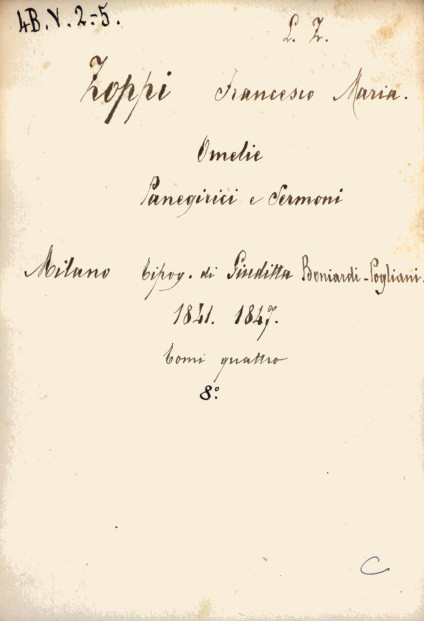 4B.V.2-5.
L. Z.
Zoppi Francesco Maria.
Omelie
Panegirici e Sermoni
Milano tipog. di Giuditta Boniardi-Pogliani.
1841. 1847.
tomi quattro
8.°
C